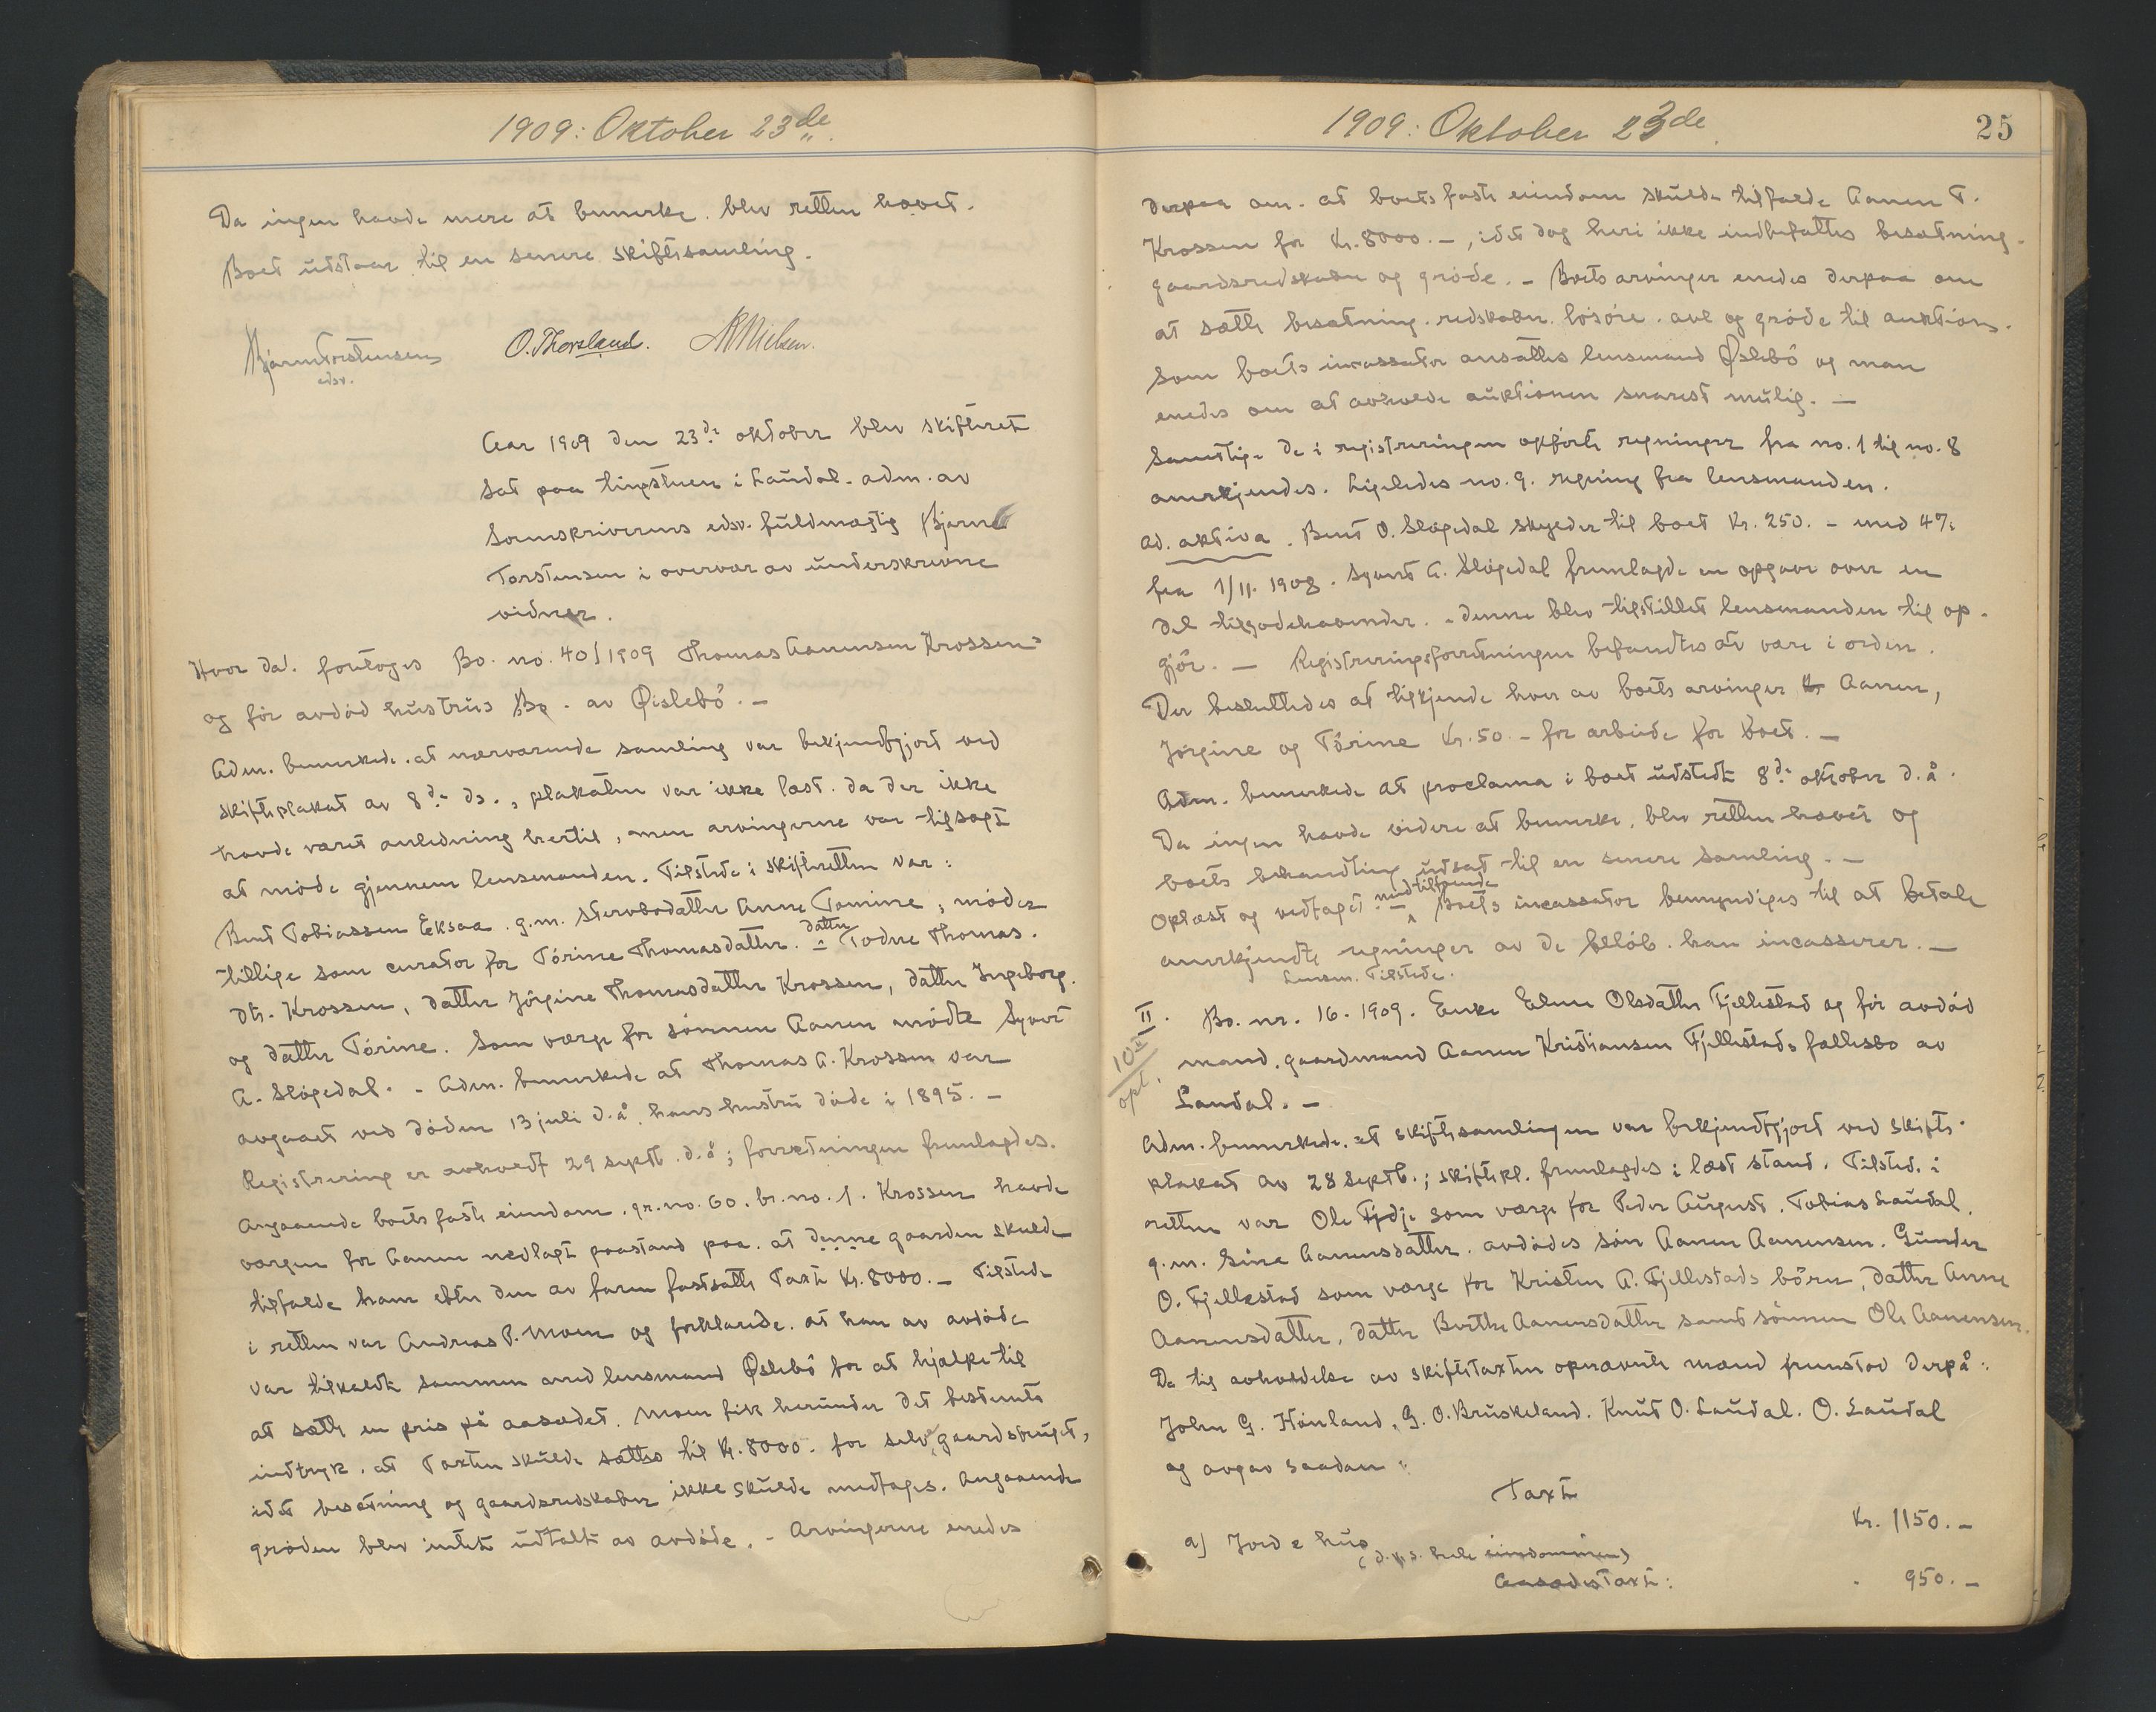 1909: Oktober 23de.
Da ingen havde mere at bemerke. blev retten hævet.
Boet utstaar til en senere skiftesamling.
Bjarne Torstensen
edsv.
O. Thorsland.
Nielsen.
Aar 1909 den 23de oktober blev skifteret
sat paa tingstuen i Laudal. adm. av
Sorenskriverens edsv. fuldmægtig Bjarne
Torstensen i overvær av underskrevne
vidner.
Hvor da: foretoges Bo. no. 40/1909 Thomas Aanensen Krossens
og før avdød hustrus Bo. av Øislebø. –
Adm. bemerkede. at nærværende samling var bekjendtgjort ved
skifteplakat av 8de ds., plakaten var ikke læst. da der ikke
havde været anledning hertil, men arvingerne var tilsagt
at møde gjennem lensmanden. Tilstede i skifteretten var:
Bent Tobiassen Eksaa. g.m. stervbodatter Anne Tomine, møder
tillige som curator for Tórine Thomasdatter. datter Todne Thomas.
dtr. Krossen, datter Jörgine Thomasdatter Krossen, datter Ingeborg.
og datter Tórine. Som værge for sønnen Aanen mødte Syvert
A. Sløgedal. – Adm. bemerkede at Thomas A. Krossen var
avgaaet ved døden 13 juli d.å. hans hustru døde i 1895. –
Registrering er avholdt 29 septb. d.å; forretningen fremlagdes.
Angaaende boets faste eiendom. gr.no. 60. br.no. 1. Krossen havde
værgen for Aanen nedlagt paastand paa. at denne gaarden skulde
tilfalde ham efter den av faren fastsatte Taxt Kr. 8000. – Tilstede
i retten var Andreas P. Moen og forklarede. at han av avdøde
var tilkaldt sammen med lensmand Øslebö for at hjælpe til
at sætte en pris på aasædet. Moen fik herunder det bestemte
indtryk. at Taxten skulde sættes til Kr. 8000. for selve gaardsbruget,
idet besætning og gaardsredskaber ikke skulde medtages. Angaaende
grøden blev intet udtalt av avdøde. – Arvingerne enedes
1909: Oktober 23de.
25
derpaa om. at boets faste eiendom skulde tilfalde Aanen T.
Krossen for Kr. 8000. –, idet dog heri ikke indbefattes besætning.
gaardsredskaber og grøde. – Boets arvinger enedes derpaa om
at sætte besætning. redskaber. løsøre. avl og grøde til auktion.
Som boets incassator ansættes lensmand Øslebö og man
enedes om at avholde auktionen snarest mulig. –
Samtlige de i registreringen opførte regninger fra no. 1 til no. 8
anerkjendes. Ligeledes no. 9. regning fra lensmanden.
Ad. aktiva. Bent O. Sløgedal skylder til boet Kr. 250. – med 4%
fra 1/11. 1908. Syvert A. Sløgedal fremlagde en opgave over en
del tilgodehavender. – denne blev tilstillet lensmanden til op-
gjør. – Registreringsforretningen befandtes at være i orden.
Der besluttedes at tilkjende hver av boets arvinger Aanen,
Jörgine og Tórine Kr. 50. – for arbeide for boet. –
Adm. bemerkede at proclama i boet utstedt 8de oktober d.å.
Da ingen havde videre at bemerke. blev retten hævet og
boets behandling utsat til en senere samling. –
Oplæst og vedtaget med tilføiende Boets incassator bemyndiges til at betale
anerkjendte regninger av de beløb. han incasserer. –
Lensm. Tilstede.
II. Bo. nr. 16. 1909. Enke Elene Olsdatter Fjellestad og før avdød
10de
opl.
mand. gaardmand Aanen Kristiansen Fjellestads fællesbo av
Laudal. –
Adm. bemerkede. at skiftesamlingen var bekjendtgjort ved skifte-
plakat av 28 septb.; skiftepl. fremlagdes i læst stand. Tilsted. i
retten var Ole som værge for Peder August. Tobias Laudal.
g.m. Sine Aanensdatter. avdødes søn Aanen Aanensen. Gunder
O. Fjellestad som værge for Kristen A. Fjellestads børn, datter Anne
Aanensdatter, datter Berthe Aanensdatter samt sønnen Ole Aanensen.
Da til avholdelse av skiftetaxten opnævnte mænd fremstod derpå:
John G. Hønland, G. O. Bruskeland. Knut O. Laudal. O. Laudal
og avgav saadan
Taxt
a) Jord & hus Kr. 1150. –
(d.v.s. hele eiendommen)
Aasædestaxt: " 950. –